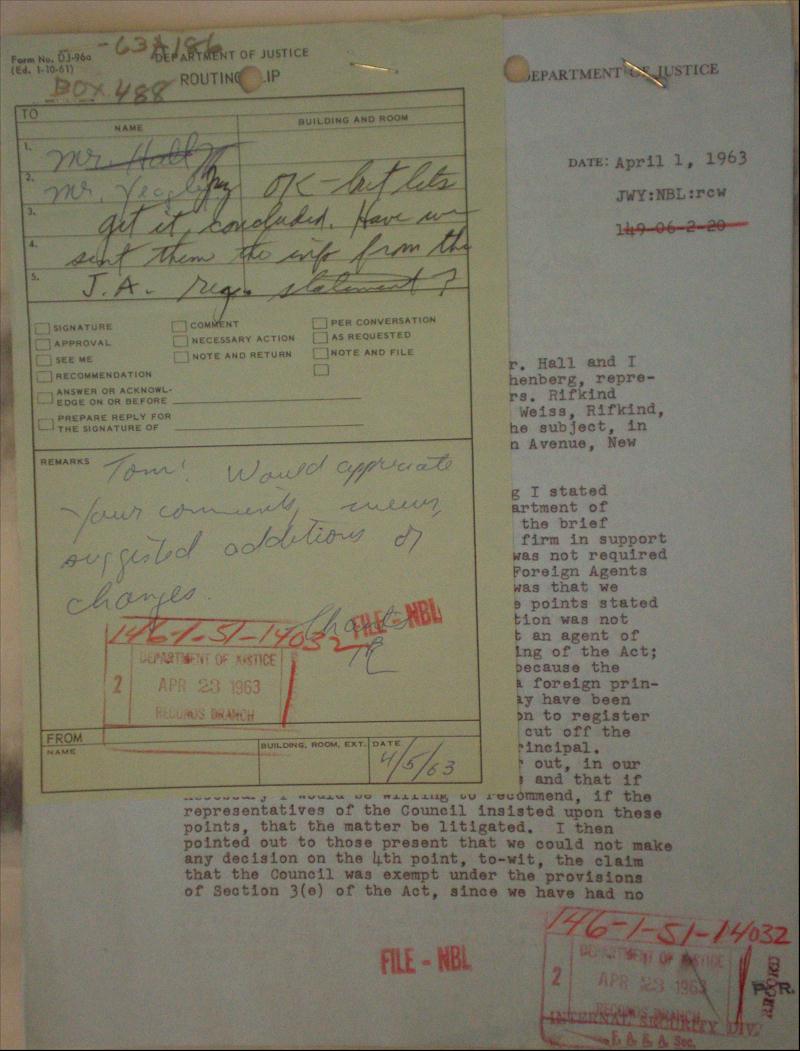 -63A186
Form No. DJ-96a
(Ed. 1-10-61)
DEPARTMENT OF JUSTICE
ROUTING SLIP
BOX 488
TO
NAME
BUILDING AND ROOM
1. Mr. Hall
2. Mr. Yeagley OK - but lets
3. get it concluded. Have we
4. sent them the info from the
5. J.A. reg. statement?
SIGNATURE
COMMENT
PER CONVERSATION
APPROVAL
NECESSARY ACTION
AS REQUESTED
SEE ME
NOTE AND RETURN
NOTE AND FILE
RECOMMENDATION
ANSWER OR ACKNOWL-
EDGE ON OR BEFORE
PREPARE REPLY FOR
THE SIGNATURE OF
REMARKS
Tom: Would appreciate
your comments, views,
suggested additions or
changes.
Thanks
FILE - NBL
146-1-51-14032
DEPARTMENT OF JUSTICE
2 APR 23 1963
RECORDS BRANCH
FROM
NAME
BUILDING, ROOM, EXT.
DATE
4/5/63
DEPARTMENT OF JUSTICE
DATE: April 1, 1963
JWY:NBL:rcw
149-06-2-20
r. Hall and I
henberg, repre-
rs. Rifkind
Weiss, Rifkind,
he subject, in
n Avenue, New
g I stated
artment of
the brief
firm in support
was not required
Foreign Agents
was that we
e points stated
tion was not
t an agent of
ing of the Act;
because the
a foreign prin-
ay have been
on to register
cut off the
rincipal.
r out, in our
; and that if
necessary I would be willing to recommend, if the
representatives of the Council insisted upon these
points, that the matter be litigated. I then
pointed out to those present that we could not make
any decision on the 4th point, to-wit, the claim
that the Council was exempt under the provisions
of Section 3(e) of the Act, since we have had no
FILE - NBL
146-1-51-14032
DEPARTMENT OF JUSTICE
2 APR 23 1963
RECORDS BRANCH
INTERNAL SECURITY DIV.
F. A. R. A. Sec.
RECORD
P.R.